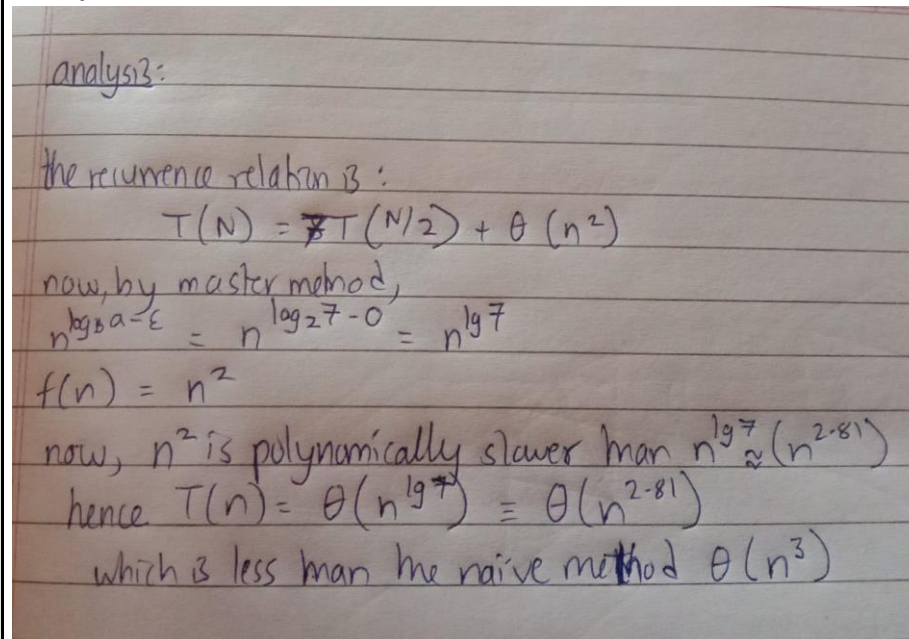 analysis:
the recurrence relation is :
T(N) = 7T (N/2) + θ (n²)
now, by master method,
n^log_b a-ε = n^log₂7-0 = n^lg7
f(n) = n²
now, n² is polynomically slower than n^lg7 ≈ (n^2.81)
hence T(n) = θ(n^lg7) = θ(n^2.81)
which is less than the naive method θ(n³)